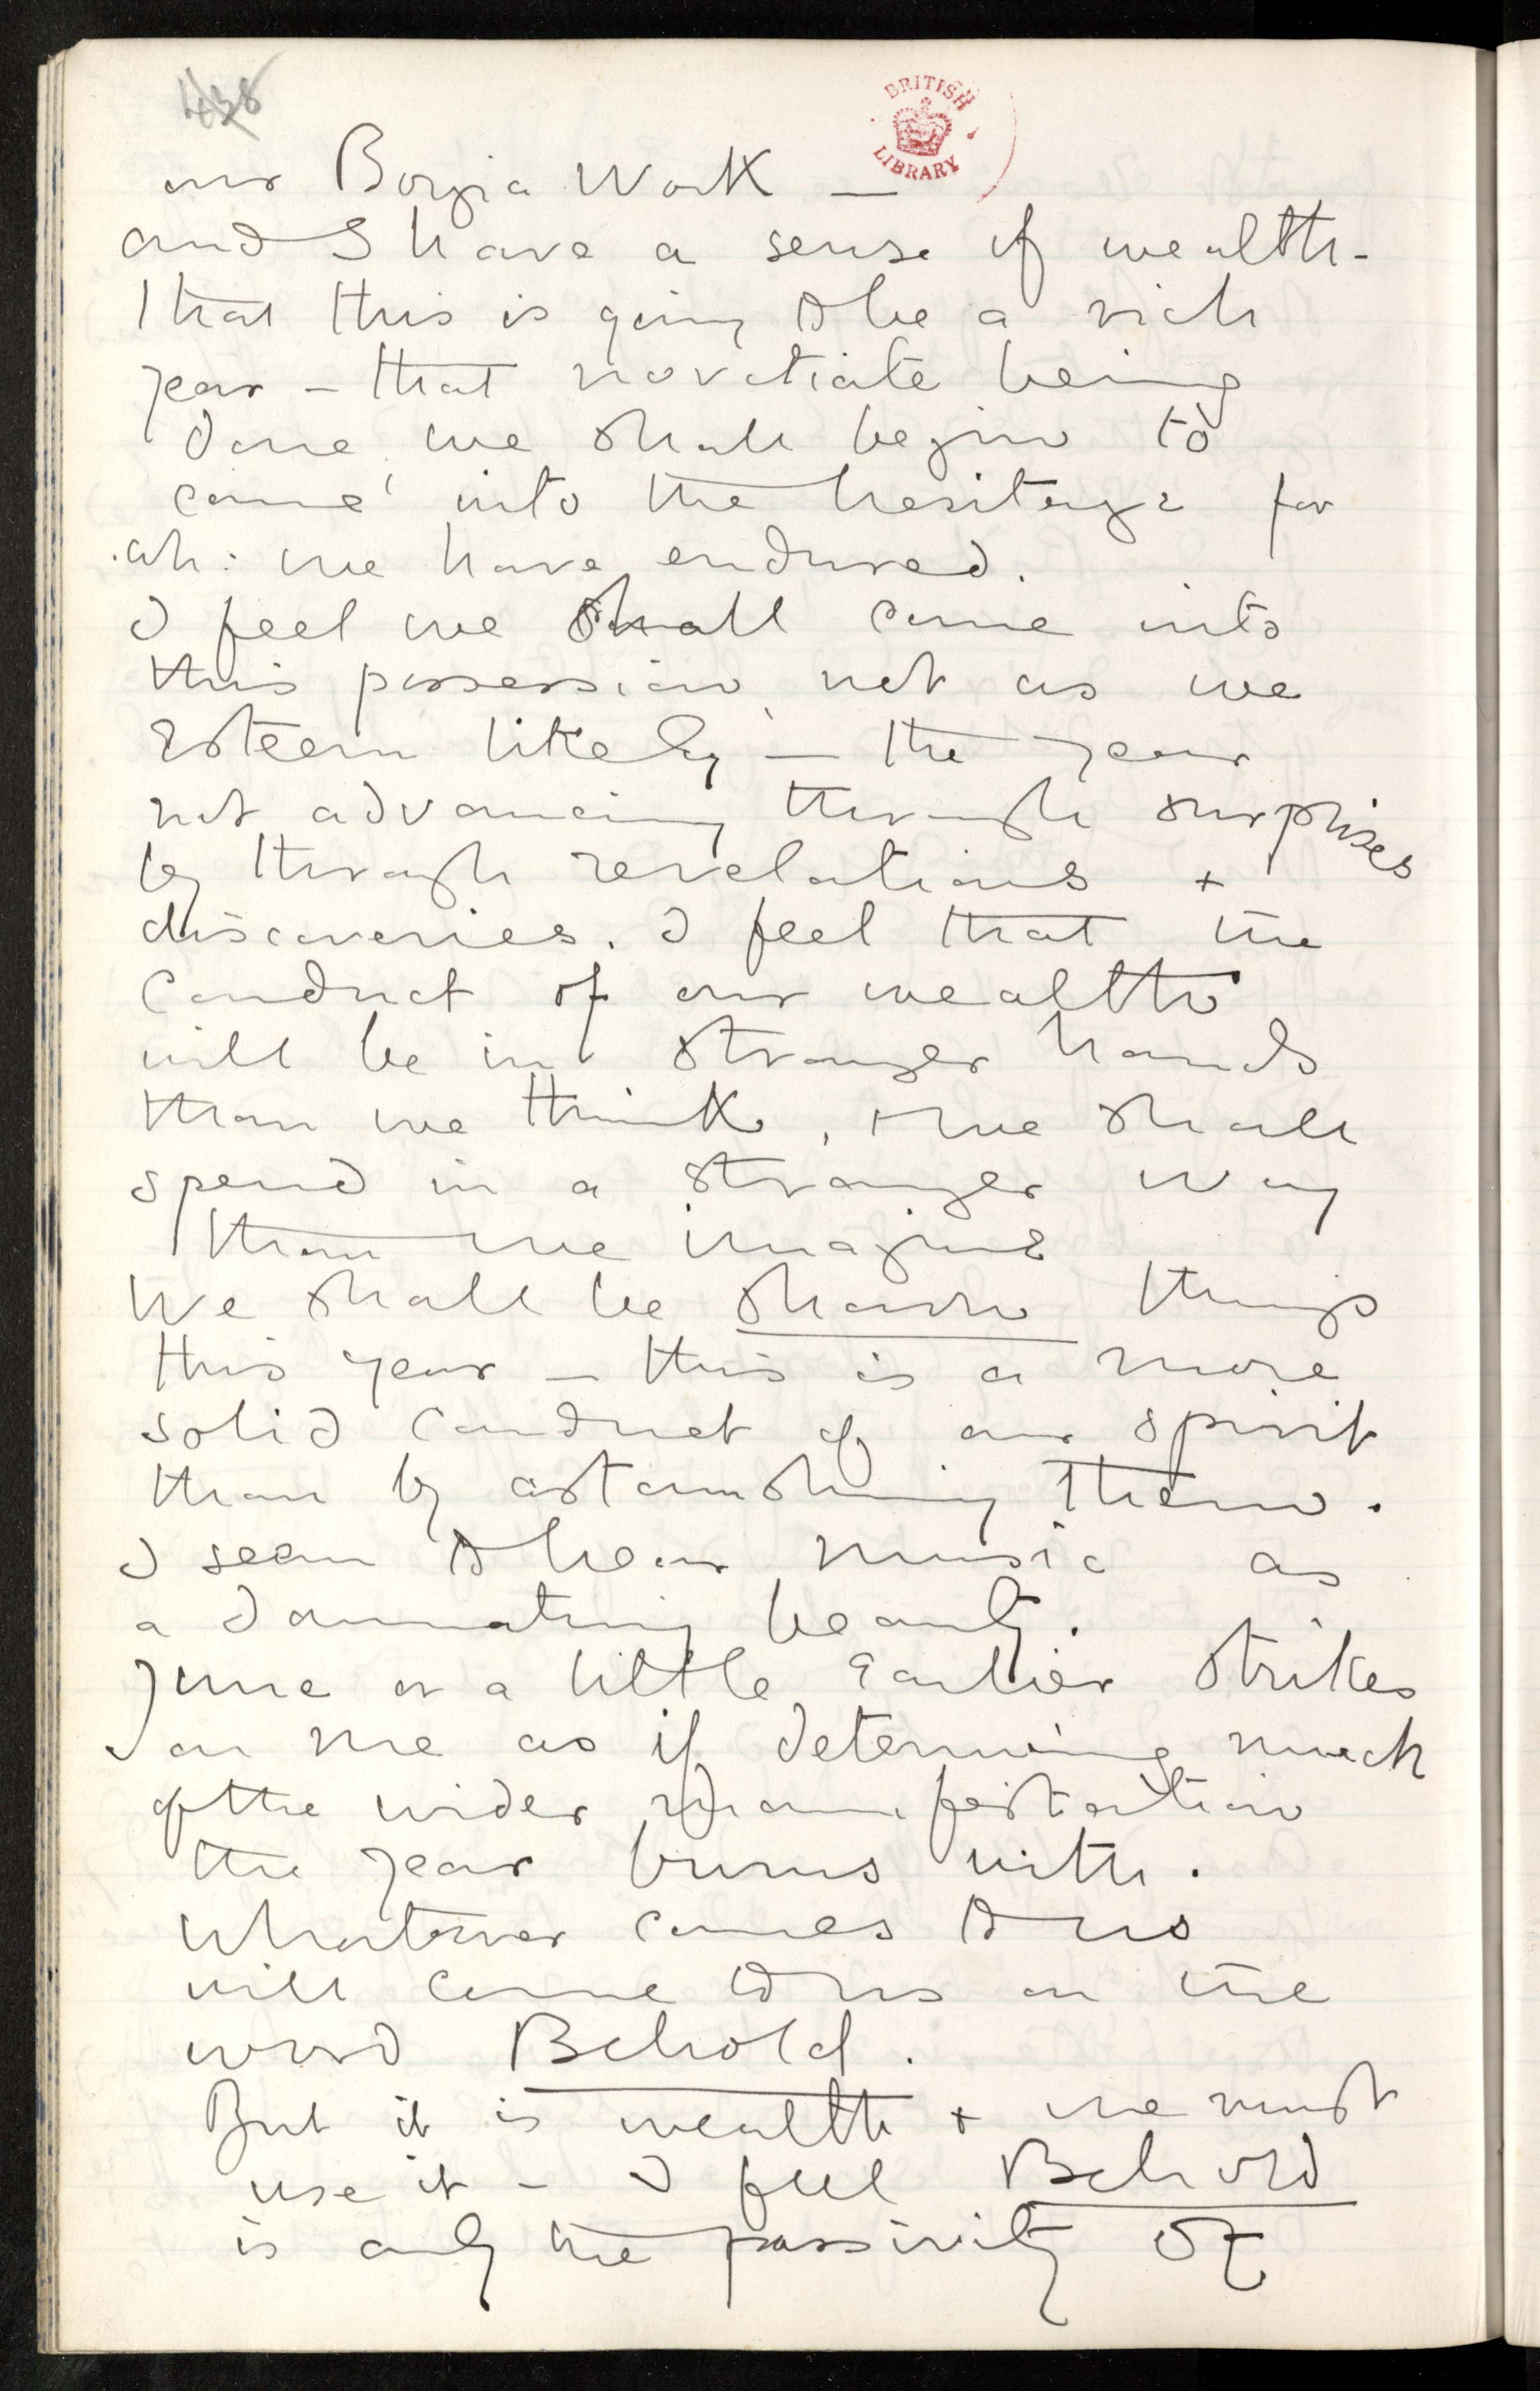 BRITISH LIBRARY
our Borgia Work —
and I have a sense of wealth -
that this is going to be a rich
year - that novitiate being
done, we shall begin to
come into the heritage for
ah: we have endured.
I feel we shall come into
this possession not as we
esteem likely — the year
not advancing through surprises
by through revelations +
discoveries. I feel that the
conduct of our wealth
will be in stranger hands
than we think, + we shall
spend in a stranger way
than we imagine
We shall be shown things
this year — this is a more
solid conduct of our spirit
than by astonishing them.
I seem to hear music as
a dominating beauty.
June or a little earlier strikes
on me as if determining much
of the wider manifestation
the year burns with.
Whatever comes to us
will come to us on the
word Behold.
But it is wealth + we must
use it - I feel Behold
is only the passivity of